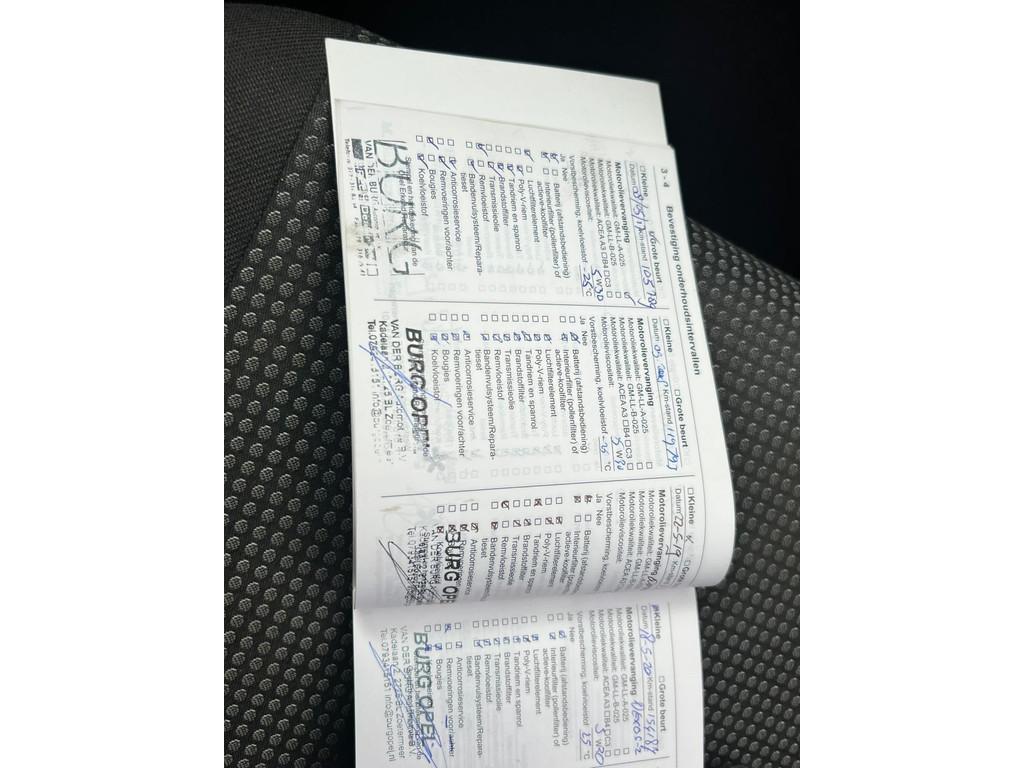 3 - 4 Bevestiging onderhoudsintervallen
Kleine Grote beurt
Datum Km-stand 105784
Motorolievervanging
Motoroliekwaliteit: GM-LL-A-025
Motoroliekwaliteit: GM-LL-B-025
Motoroliekwaliteit: ACEA A3 B4 C3
Motorolieviscositeit: 5 W30
Vorstbescherming, koelvloeistof -25 °C
Ja Nee
Batterij (afstandsbediening)
Interieurfilter (pollenfilter) of
actieve-koolfilter
Luchtfilterelement
Poly-V-riem
Tandriem en spanrol
Brandstoffilter
Transmissieolie
Remvloeistof
Bandenvulsysteem/Repara-
tieset
Anticorrosieservice
Remvoeringen voor/achter
Bougies
Koelvloeistof
BURG
VAN DEN BU
Kleine Grote beurt
Datum Km-stand
Motorolievervanging
Motoroliekwaliteit: GM-LL-A-025
Motoroliekwaliteit: GM-LL-B-025
Motoroliekwaliteit: ACEA A3 B4 C3
Motorolieviscositeit: 5 W
Vorstbescherming, koelvloeistof °C
Ja Nee
Batterij (afstandsbediening)
Interieurfilter (pollenfilter) of
actieve-koolfilter
Luchtfilterelement
Poly-V-riem
Tandriem en spanrol
Brandstoffilter
Transmissieolie
Remvloeistof
Bandenvulsysteem/Repara-
tieset
Anticorrosieservice
Remvoeringen voor/achter
Bougies
Koelvloeistof
BURG OPEL
VAN DER BURG
Kleine
Datum 22-5-19
Motorolievervanging
Motoroliekwaliteit: GM
Motoroliekwaliteit: GM
Motoroliekwaliteit: ACE
Motorolieviscositeit
Vorstbescherming, koelvloei
Ja Nee
Batterij (afstandsbe
Interieurfilter (pollenf
actieve-koolfilter
Luchtfilterelement
Poly-V-riem
Tandriem en span
Brandstoffilter
Transmissieolie
Remvloeistof
Bandenvulsysteem
tieset
Anticorrosieservice
Remvoeringen
Koelvloeistof
BURG OPE
Kleine Grote beurt
Datum Km-stand
Motorolievervanging
Motoroliekwaliteit: GM-LL-A-025
Motoroliekwaliteit: GM-LL-B-025
Motoroliekwaliteit: ACEA A3 B4 C3
Motorolieviscositeit: 5 W20
Vorstbescherming, koelvloeistof 25 °C
Ja Nee
Batterij (afstandsbediening)
Interieurfilter (pollenfilter) of
actieve-koolfilter
Luchtfilterelement
Poly-V-riem
Tandriem en spanrol
Brandstoffilter
Transmissieolie
Remvloeistof
Bandenvulsysteem/Repara-
tieset
Anticorrosieservice
Remvoeringen voor/achter
Bougies
BURG OPEL
VAN DER B
2725 BL Zoetermeer
info@burgopel.nl